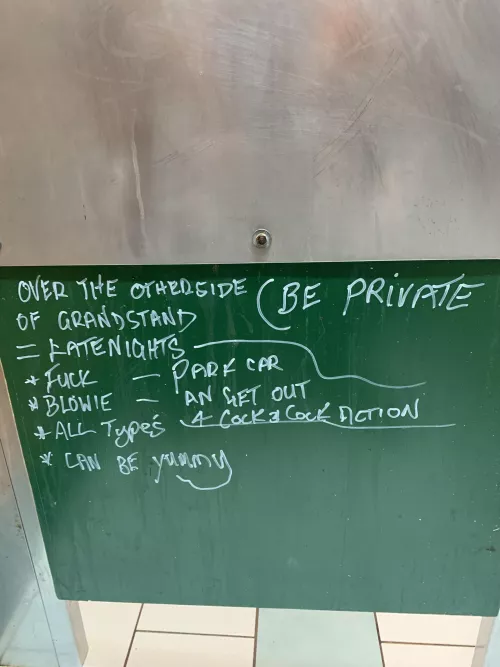 OVER THE OTHERSIDE (BE PRIVATE
OF GRANDSTAND
= LATENIGHTS
* FUCK — PARK CAR
* BLOWIE — AN GET OUT
* ALL TYPES 4 COCK 2 COCK ACTION
* CAN BE yummy